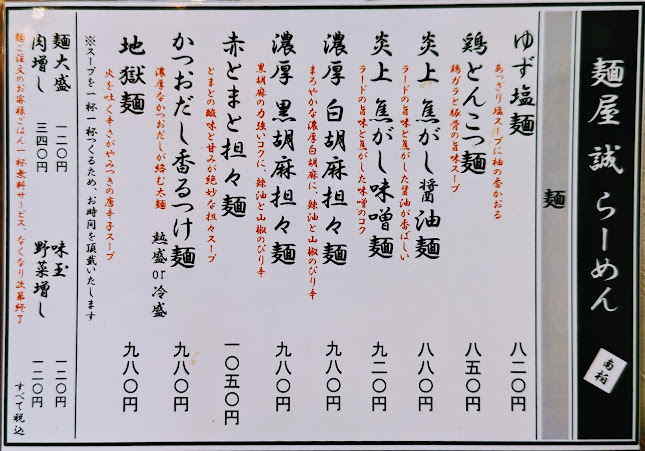 麺屋 誠 らーめん
南柏
麺
ゆず塩麺 八二〇円
あっさり塩スープに柚の香かおる
鶏とんこつ麺 八五〇円
鶏ガラと豚骨の旨味スープ
炎上 焦がし醤油麺 八八〇円
ラードの旨味と焦がした醤油が香ばしい
炎上 焦がし味噌麺 九二〇円
ラードの旨味と焦がした味噌のコク
濃厚 白胡麻担々麺 九八〇円
まろやかな濃厚白胡麻に、辣油と山椒のぴり辛
濃厚 黒胡麻担々麺 九八〇円
黒胡麻の力強いコクに、辣油と山椒のぴり辛
赤とまと担々麺 一〇五〇円
とまとの酸味と甘みが絶妙な担々スープ
かつおだし香るつけ麺 熱盛or冷盛 九八〇円
濃厚なかつおだしが絡む太麺
地獄麺 九八〇円
火を吐く辛さがやみつきの唐辛子スープ
※スープを一杯一杯つくるため、お時間を頂戴いたします
麺大盛 一二〇円 味玉 一二〇円
肉増し 三四〇円 野菜増し 一二〇円
麺ご注文のお客様ごはん一杯無料サービス、なくなり次第終了
すべて税込